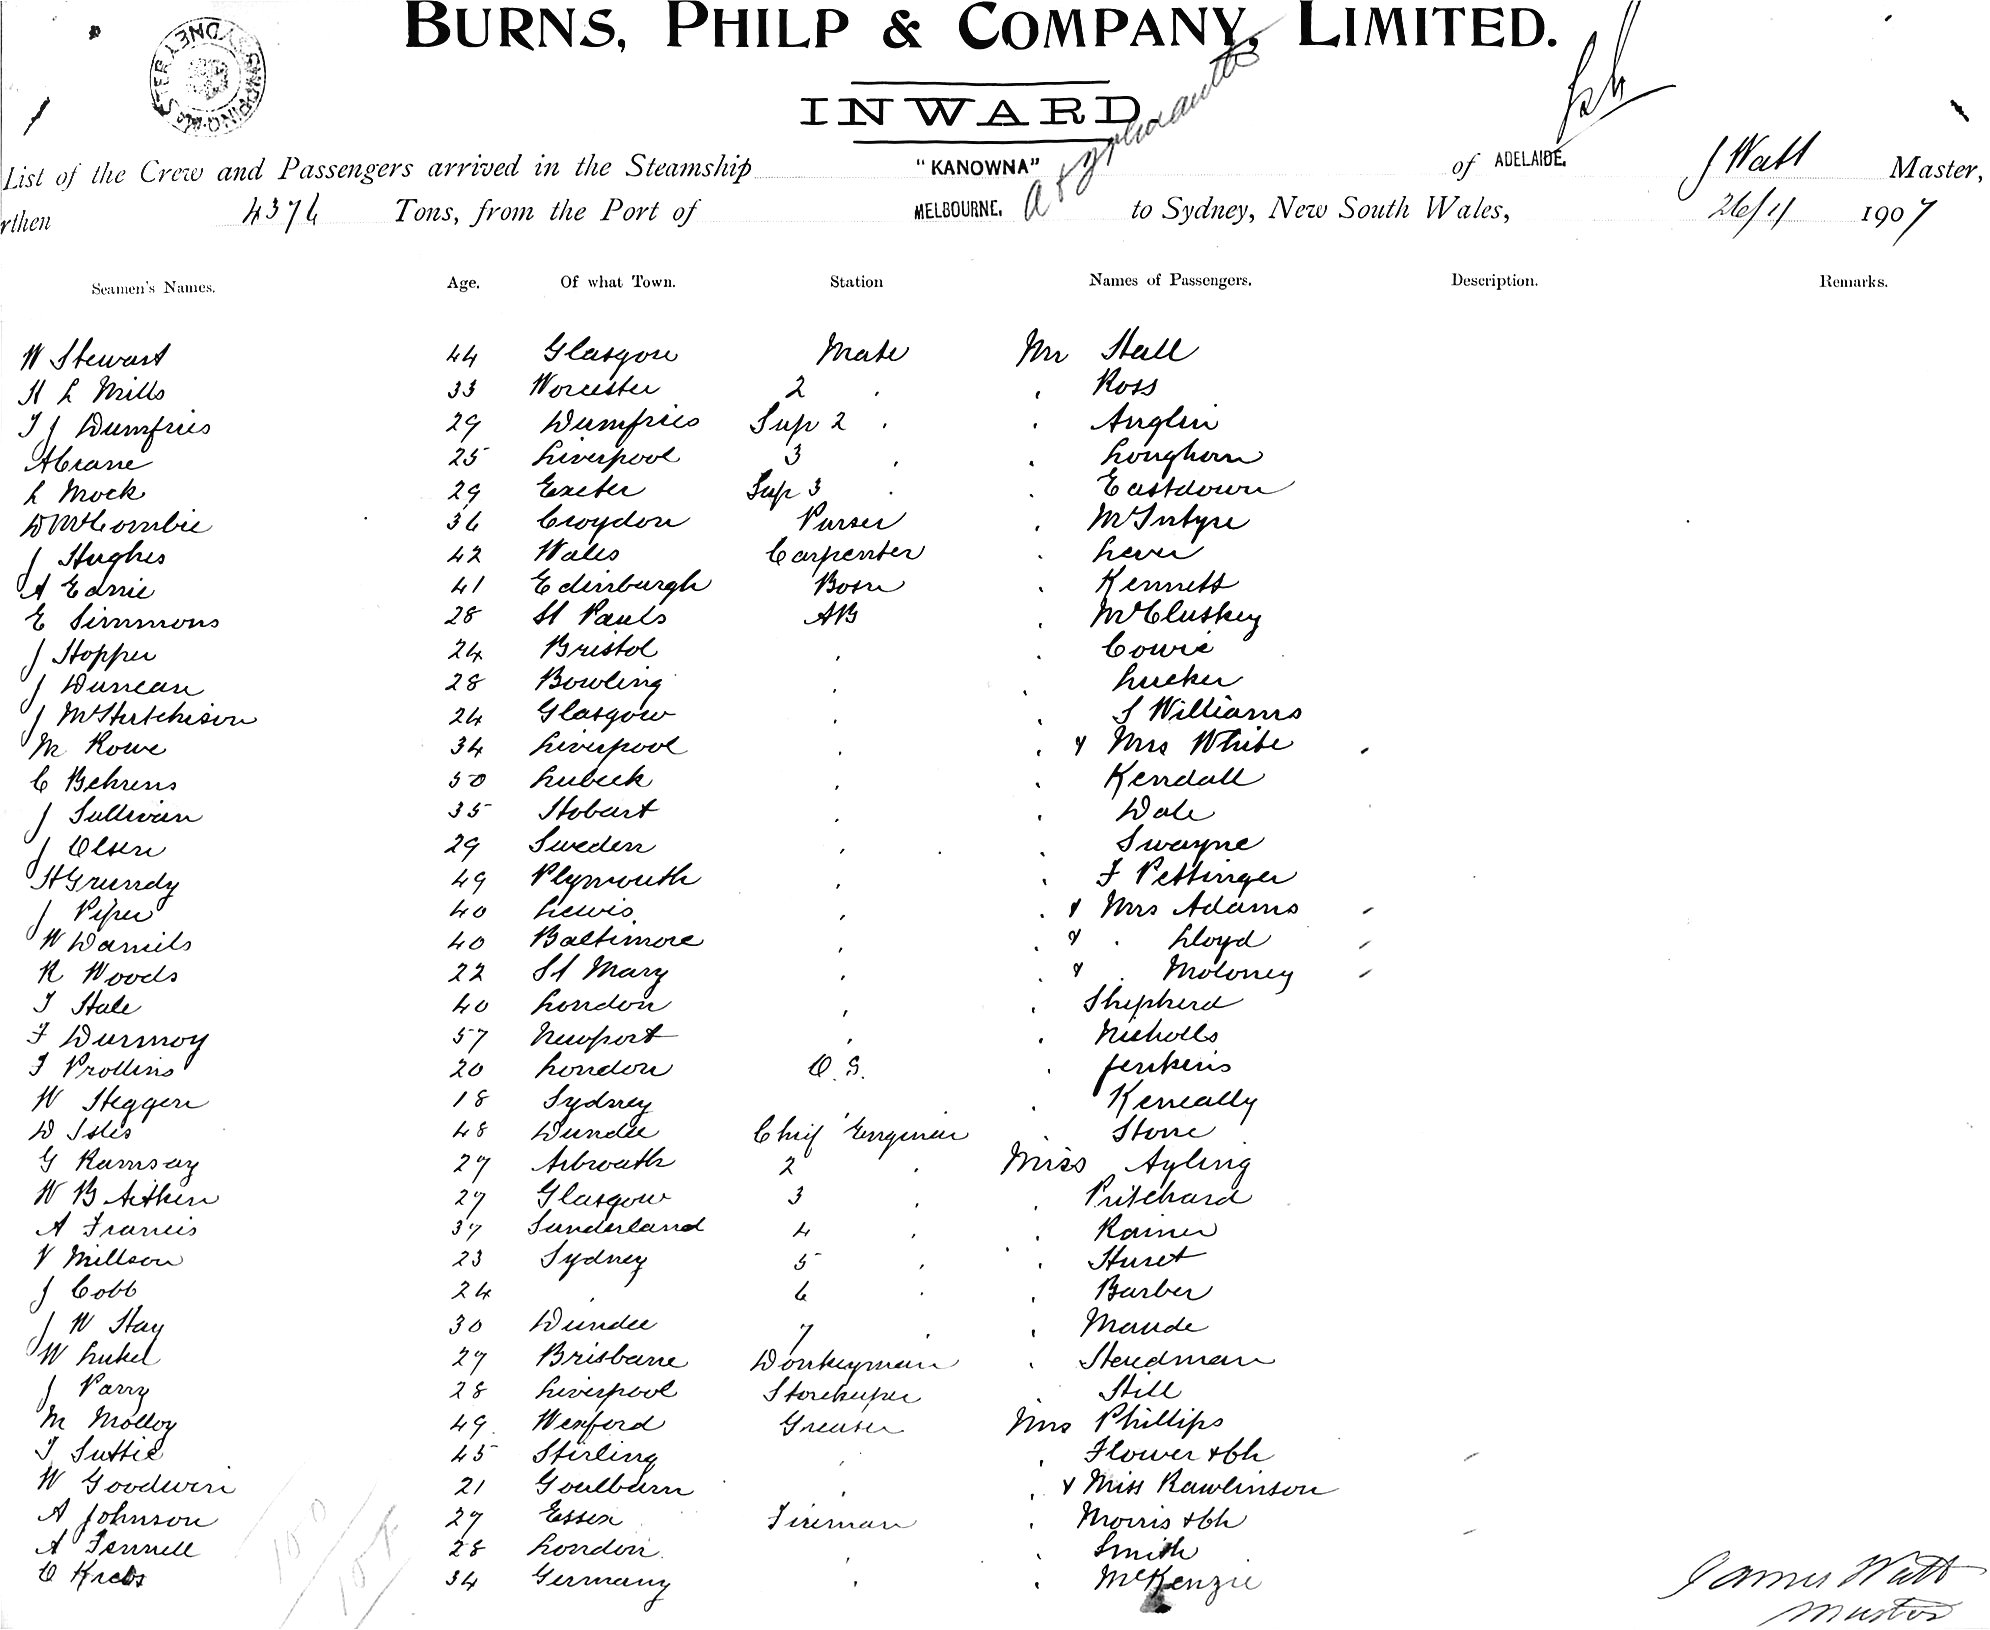 BURNS, PHILP & COMPANY, LIMITED.
INWARD
List of the Crew and Passengers arrived in the Steamship "KANOWNA" of ADELAIDE. J Watt Master,
rthen 4376 Tons, from the Port of MELBOURNE. to Sydney, New South Wales, 26/11 1907
Seamen's Names. Age. Of what Town. Station Names of Passengers. Description. Remarks.
W Stewart 44 Glasgow Mate Mr Hall
H L Mills 33 Worcester 2 " " Ross
T J Dumfries 29 Dumfries Sup 2 " " Anglin
A Crane 25 Liverpool 3 " " Longhorn
L Mock 29 Exeter Sup 3 " " Eastdown
D McCombie 36 Croydon Purser " McIntyre
J Hughes 42 Wales Carpenter " Lever
A Eanie 41 Edinburgh Bosn " Kennett
E Simmons 28 St Pauls AB " McCluskey
J Hopper 24 Bristol " " Cowie
J Duncan 28 Bowling " " Lucker
J McHutchison 24 Glasgow " " S Williams
M Rowe 34 Liverpool " " & Mrs White
C Behrens 50 Lubeck " " Kendall
J Sullivan 35 Hobart " " Dale
J Olsen 29 Sweden " " Swayne
H Grundy 49 Plymouth " " F Pettinger
J Piper 40 Lewis " " & Mrs Adams
W Daniels 40 Baltimore " " & " Lloyd
R Woods 22 St Mary " " & " Moloney
T Hale 40 London " " Shepherd
F Durmoy 57 Newport " " Nicholls
T Prollins 20 London O.S. " Jenkins
W Heggen 18 Sydney " " Kenneally
D Isles 48 Dundee Chief Engineer " Stone
G Ramsay 27 Arbroath 2 " Miss Ayling
W B Aitken 27 Glasgow 3 " " Pritchard
A Francis 37 Sunderland 4 " " Rainer
V Millson 23 Sydney 5 " " Huset
J Cobb 24 " 6 " " Barber
J W Hay 30 Dundee 7 " " Maude
W Lukel 27 Brisbane Donkeyman " Steedman
J Parry 28 Liverpool Storekeeper " Still
M Molloy 49 Wexford Greaser Mrs Phillips
T Suttie 45 Stirling " " Flower & Ch
W Goodwin 21 Goulburn " " & Miss Rawlinson
A Johnson 27 Essex Fireman " Morris & Ch
A Fennell 28 London " " Smith
O Krebs 34 Germany " " McKenzie
James Watt
Master